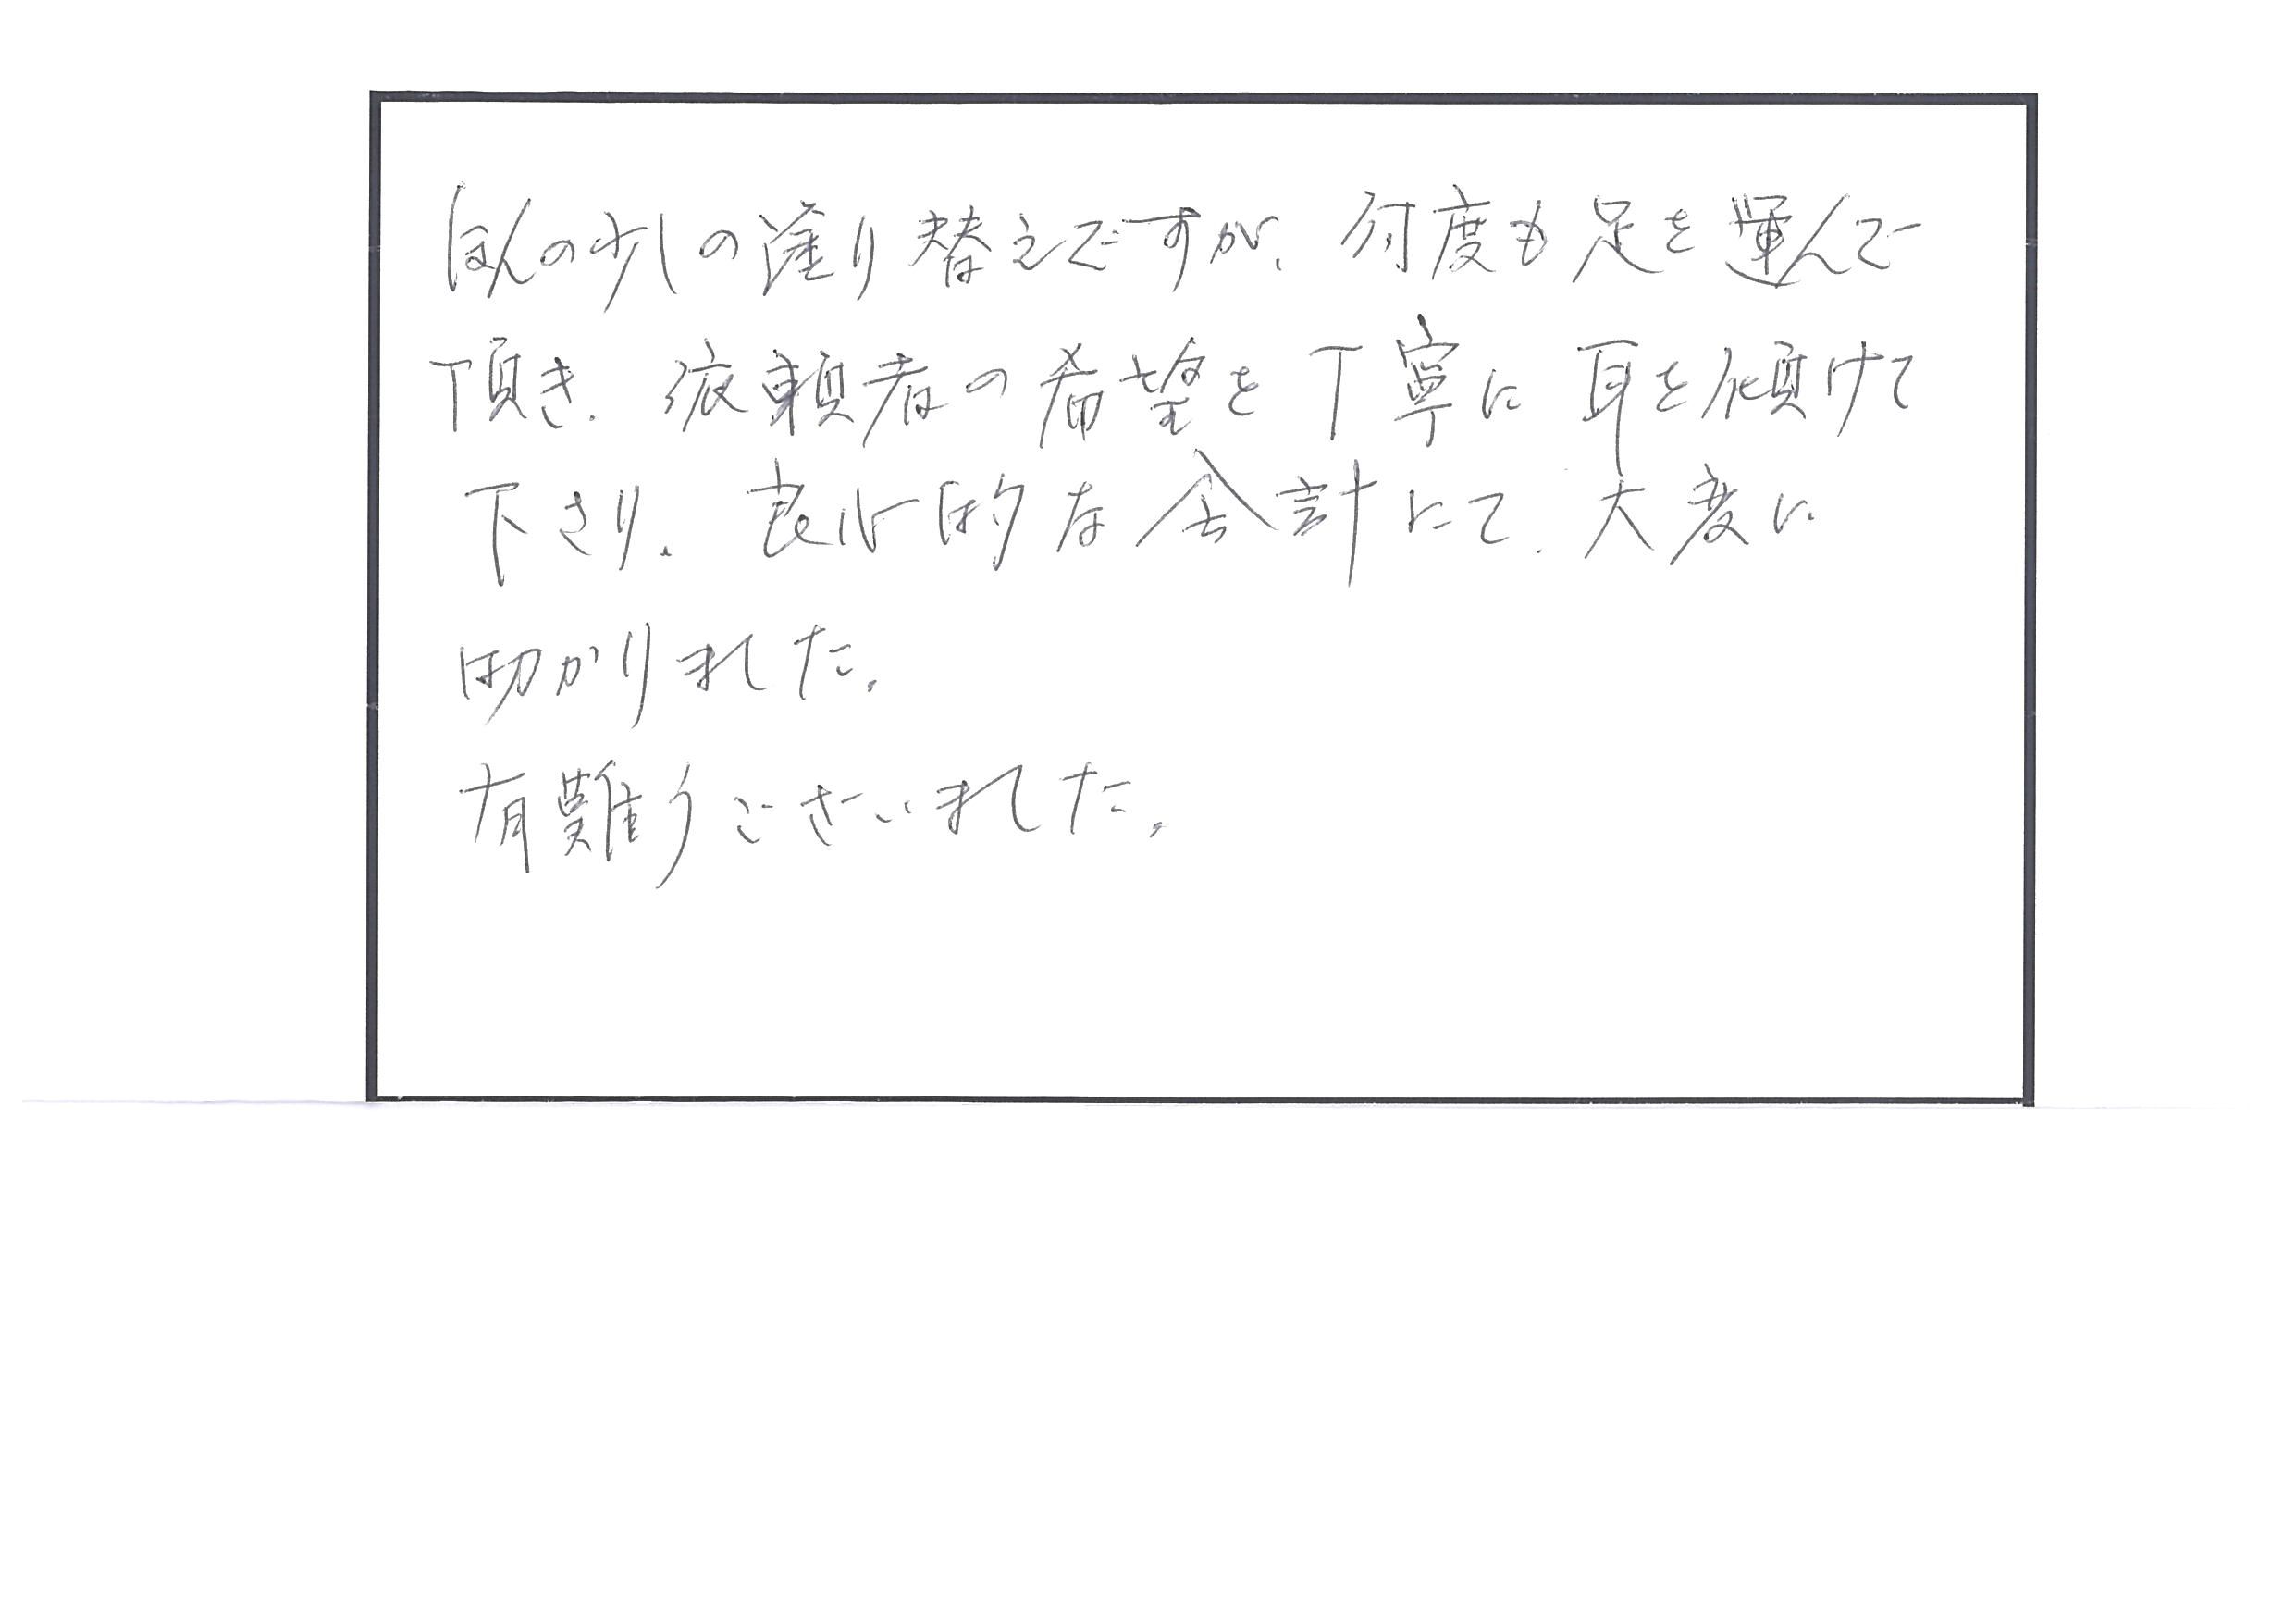 ほんの少しの塗り替えですが、何度も足を運んで
頂き、依頼者の希望を丁寧に耳を傾けて
下さり、良心的な会計にて、大変に
助かりました。
有難うございました。